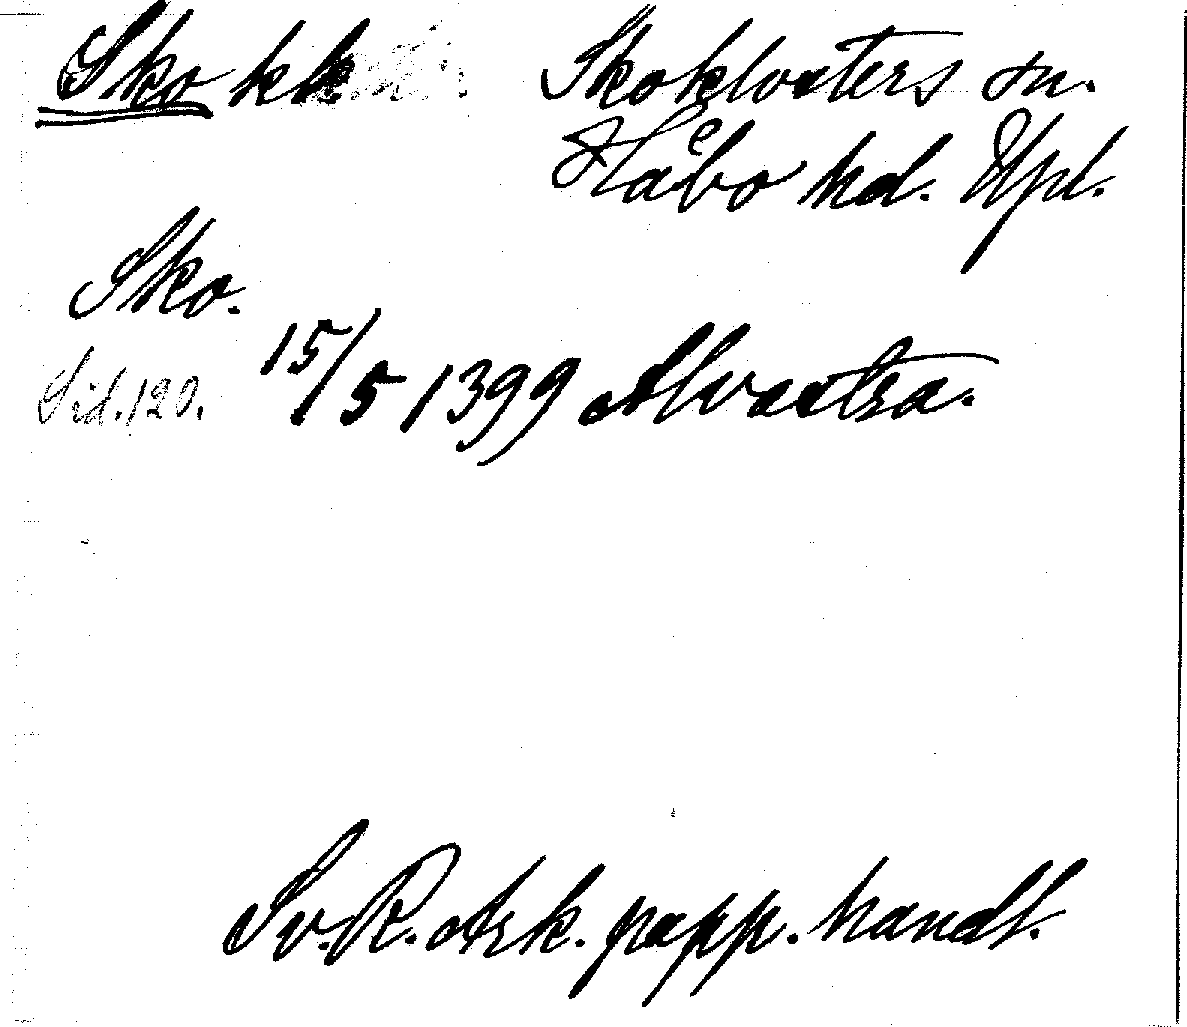 Sko kk Skoklosters sn.
Håbo hd. Upl.
Sko.
Sid. 120. 15/5 1399 Alvastra.
Sv. R. Ark. papp. handl.